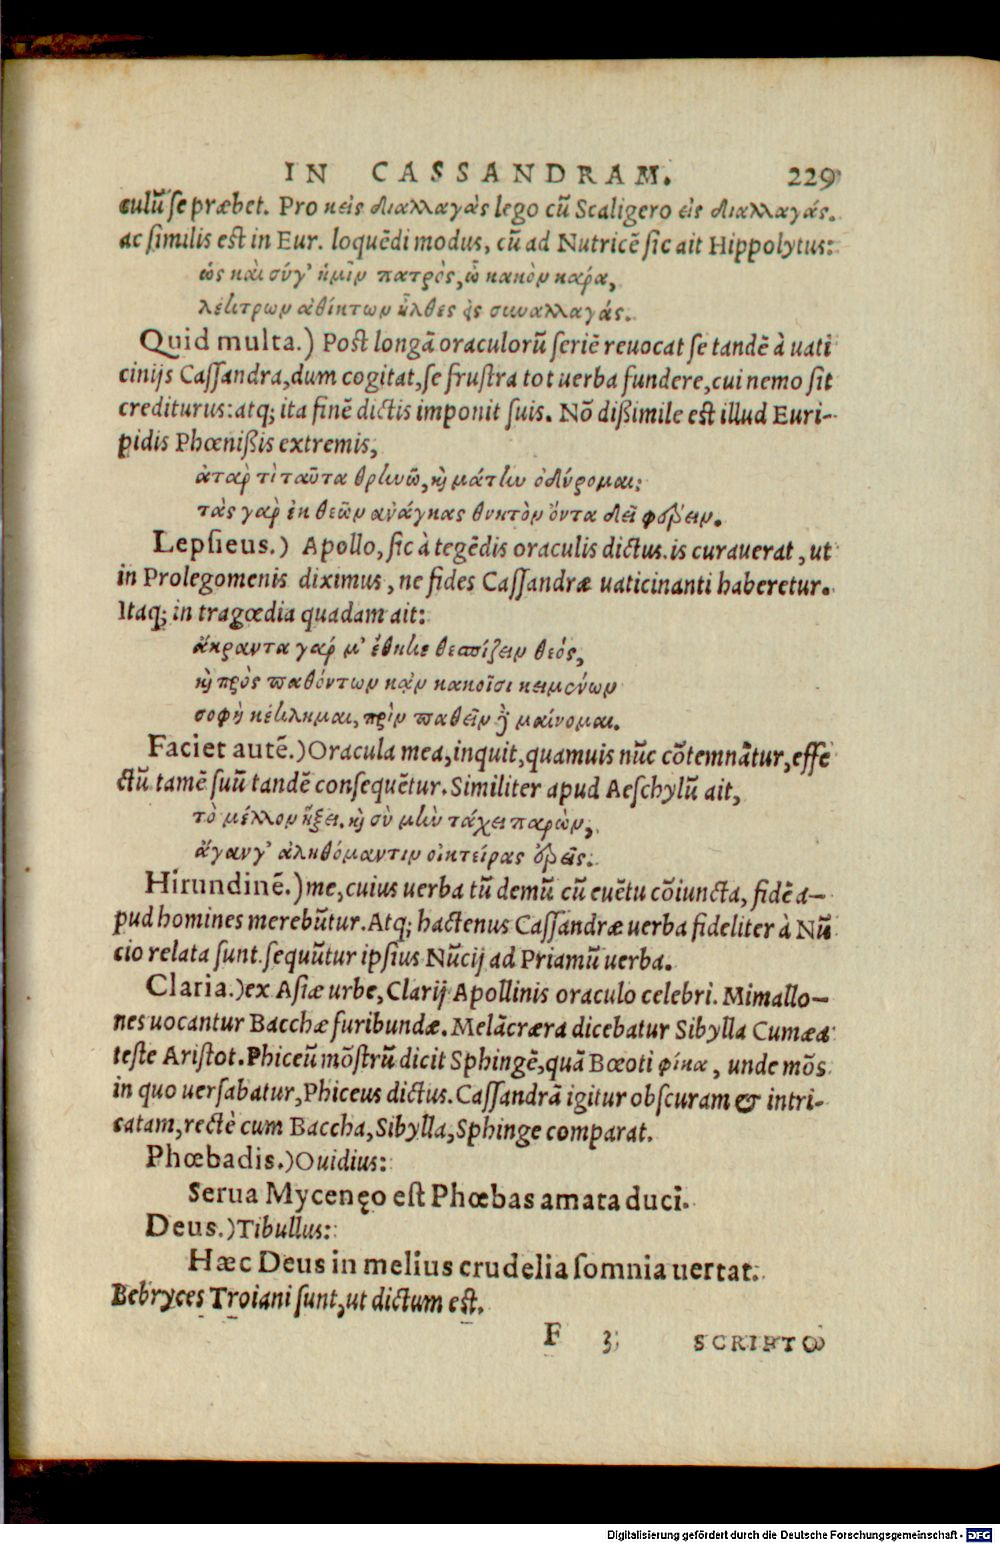 IN CASSANDRAM. 229
culũ se præbet. Pro κεἰς διαλλαγὰς lego cũ Scaligero εἰς διαλλαγάς.
ac similis est in Eur. loquẽdi modus, cũ ad Nutricẽ sic ait Hippolytus:
ὡς καὶ σύγ' ἡμῖν πατρὸς, ὦ κακὸν κάρα,
λέκτρων ἀθίκτων ἦλθες ἐς συναλλαγάς.
Quid multa.) Post longã oraculorũ seriẽ reuocat se tandẽ à uati
cinijs Cassandra, dum cogitat, se frustra tot uerba fundere, cui nemo sit
crediturus: atq; ita finẽ dictis imponit suis. Nõ dißimile est illud Euri-
pidis Phœnißis extremis,
ἀτὰρ τὶ ταῦτα θρηνῶ, καὶ μάτην ὀδύρομαι;
τὰς γὰρ ἐκ θεῶν ἀνάγκας θνητὸν ὄντα δεῖ φέρειν.
Lepsieus.) Apollo, sic à tegẽdis oraculis dictus. is curauerat, ut
in Prolegomenis diximus, ne fides Cassandræ uaticinanti haberetur.
Itaq; in tragœdia quadam ait:
ἄκραντα γάρ μ' ἔθηκε θεσπίζειν θεός,
καὶ πρὸς παθόντων κᾀν κακοῖσι κειμένων
σοφὴ κέκλημαι, πρὶν παθεῖν δὲ μαίνομαι.
Faciet autẽ.) Oracula mea, inquit, quamuis nũc cõtemnãtur, effe
ctũ tamẽ suũ tandẽ consequẽtur. Similiter apud Aeschylũ ait,
τὸ μέλλον ἥξει. καὶ σὺ μὴν τάχει παρὼν,
ἄγανγ' ἀληθόμαντιν οἰκτείρας ἐρεῖς.
Hirundinẽ.) me, cuius uerba tũ demũ cũ euẽtu cõiuncta, fidẽ a-
pud homines merebũtur. Atq; hactenus Cassandræ uerba fideliter à Nũ
cio relata sunt. sequũtur ipsius Nũcij ad Priamũ uerba.
Claria.) ex Asiæ urbe, Clarij Apollinis oraculo celebri. Mimallo-
nes uocantur Bacchæ furibundæ. Melãcræra dicebatur Sibylla Cumæa
teste Aristot. Phiceũ mõstrũ dicit Sphingẽ, quã Bœoti φίκα, unde mõs
in quo uersabatur, Phiceus dictus. Cassandrã igitur obscuram & intri-
catam, rectè cum Baccha, Sibylla, Sphinge comparat.
Phœbadis.) Ouidius:
Serua Mycenęo est Phœbas amata duci.
Deus.) Tibullus:
Hæc Deus in melius crudelia somnia uertat.
Bebryces Troiani sunt, ut dictum est.
F 3 SCRIPTO
Digitalisierung gefördert durch die Deutsche Forschungsgemeinschaft - DFG